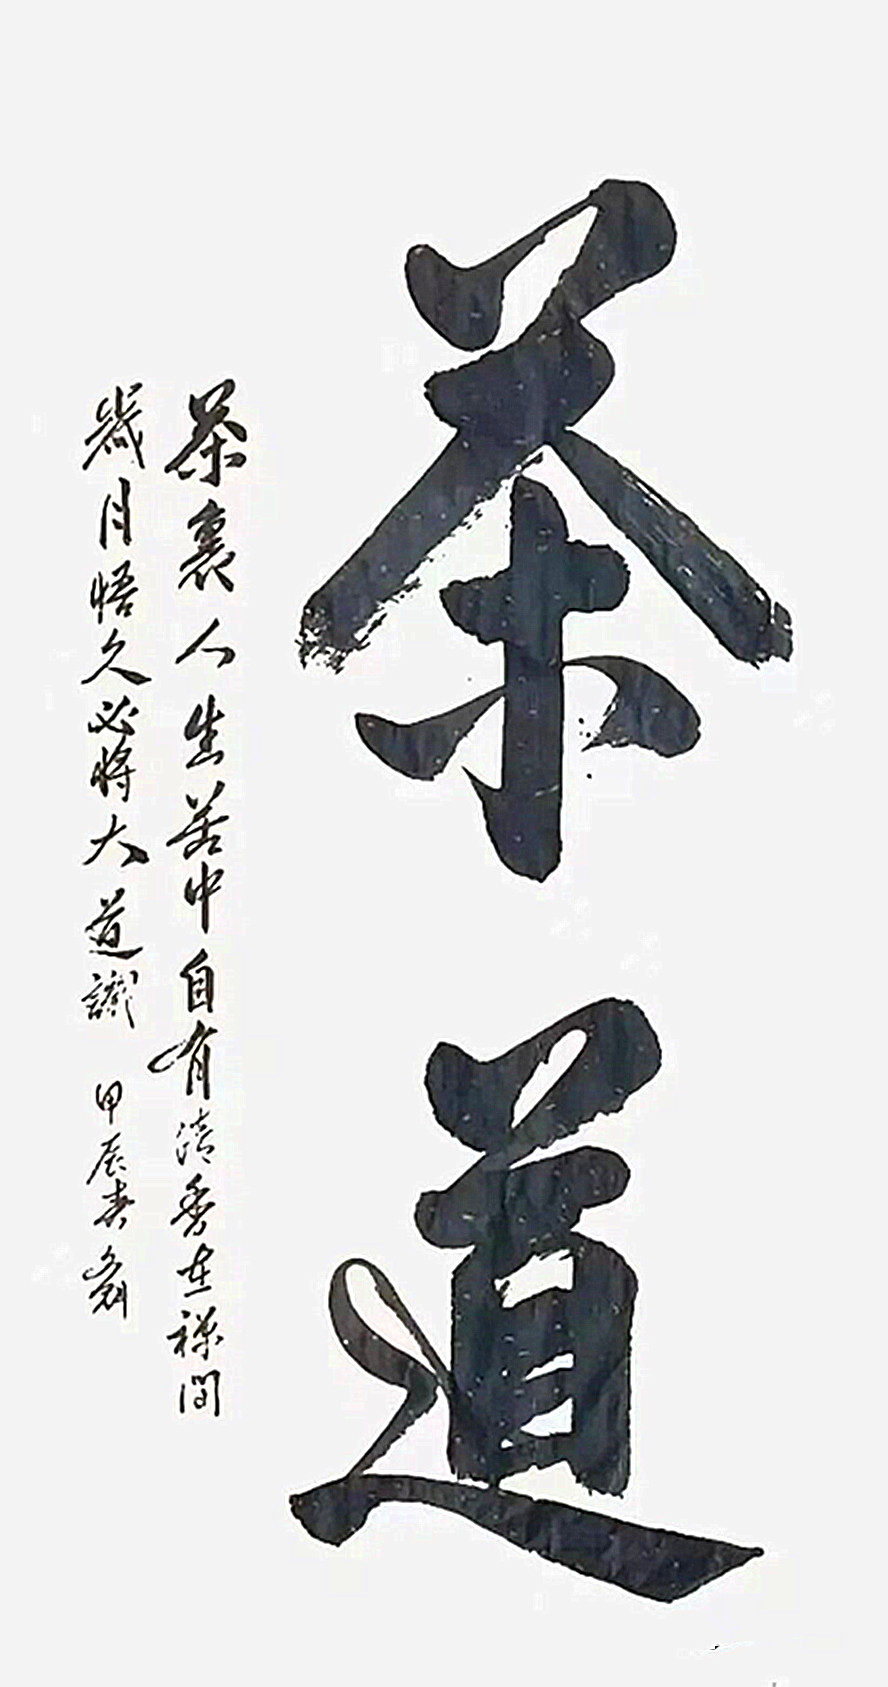 茶道
茶裏人生苦中自有清香在禅間
歲月悟久必將大道識 甲辰春